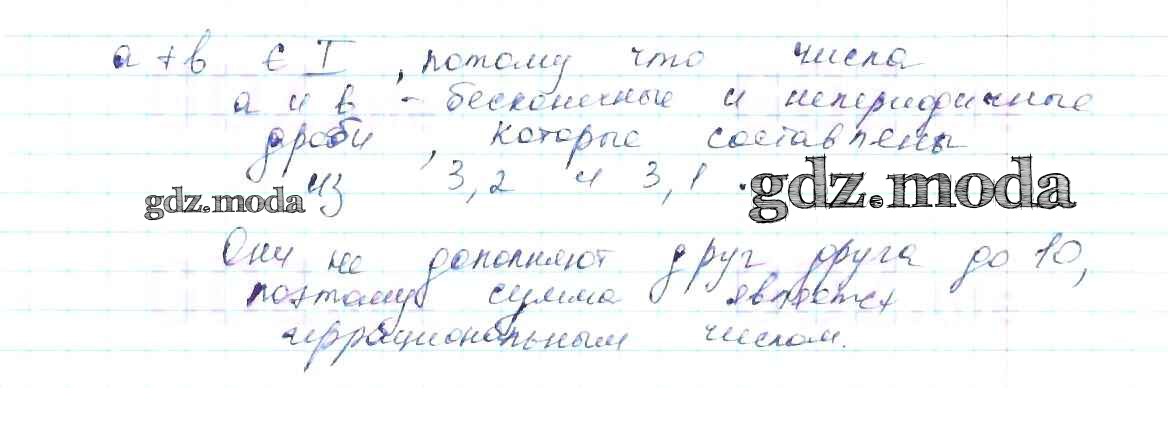 a + b ∈ I, потому что числа
a и b - бесконечные и непериодичные
дроби, которые составлены
из 3, 2 и 3, 1.
gdz.moda
gdz.moda
Они не дополняют друг друга до 10,
поэтому сумма является
иррациональным числом.